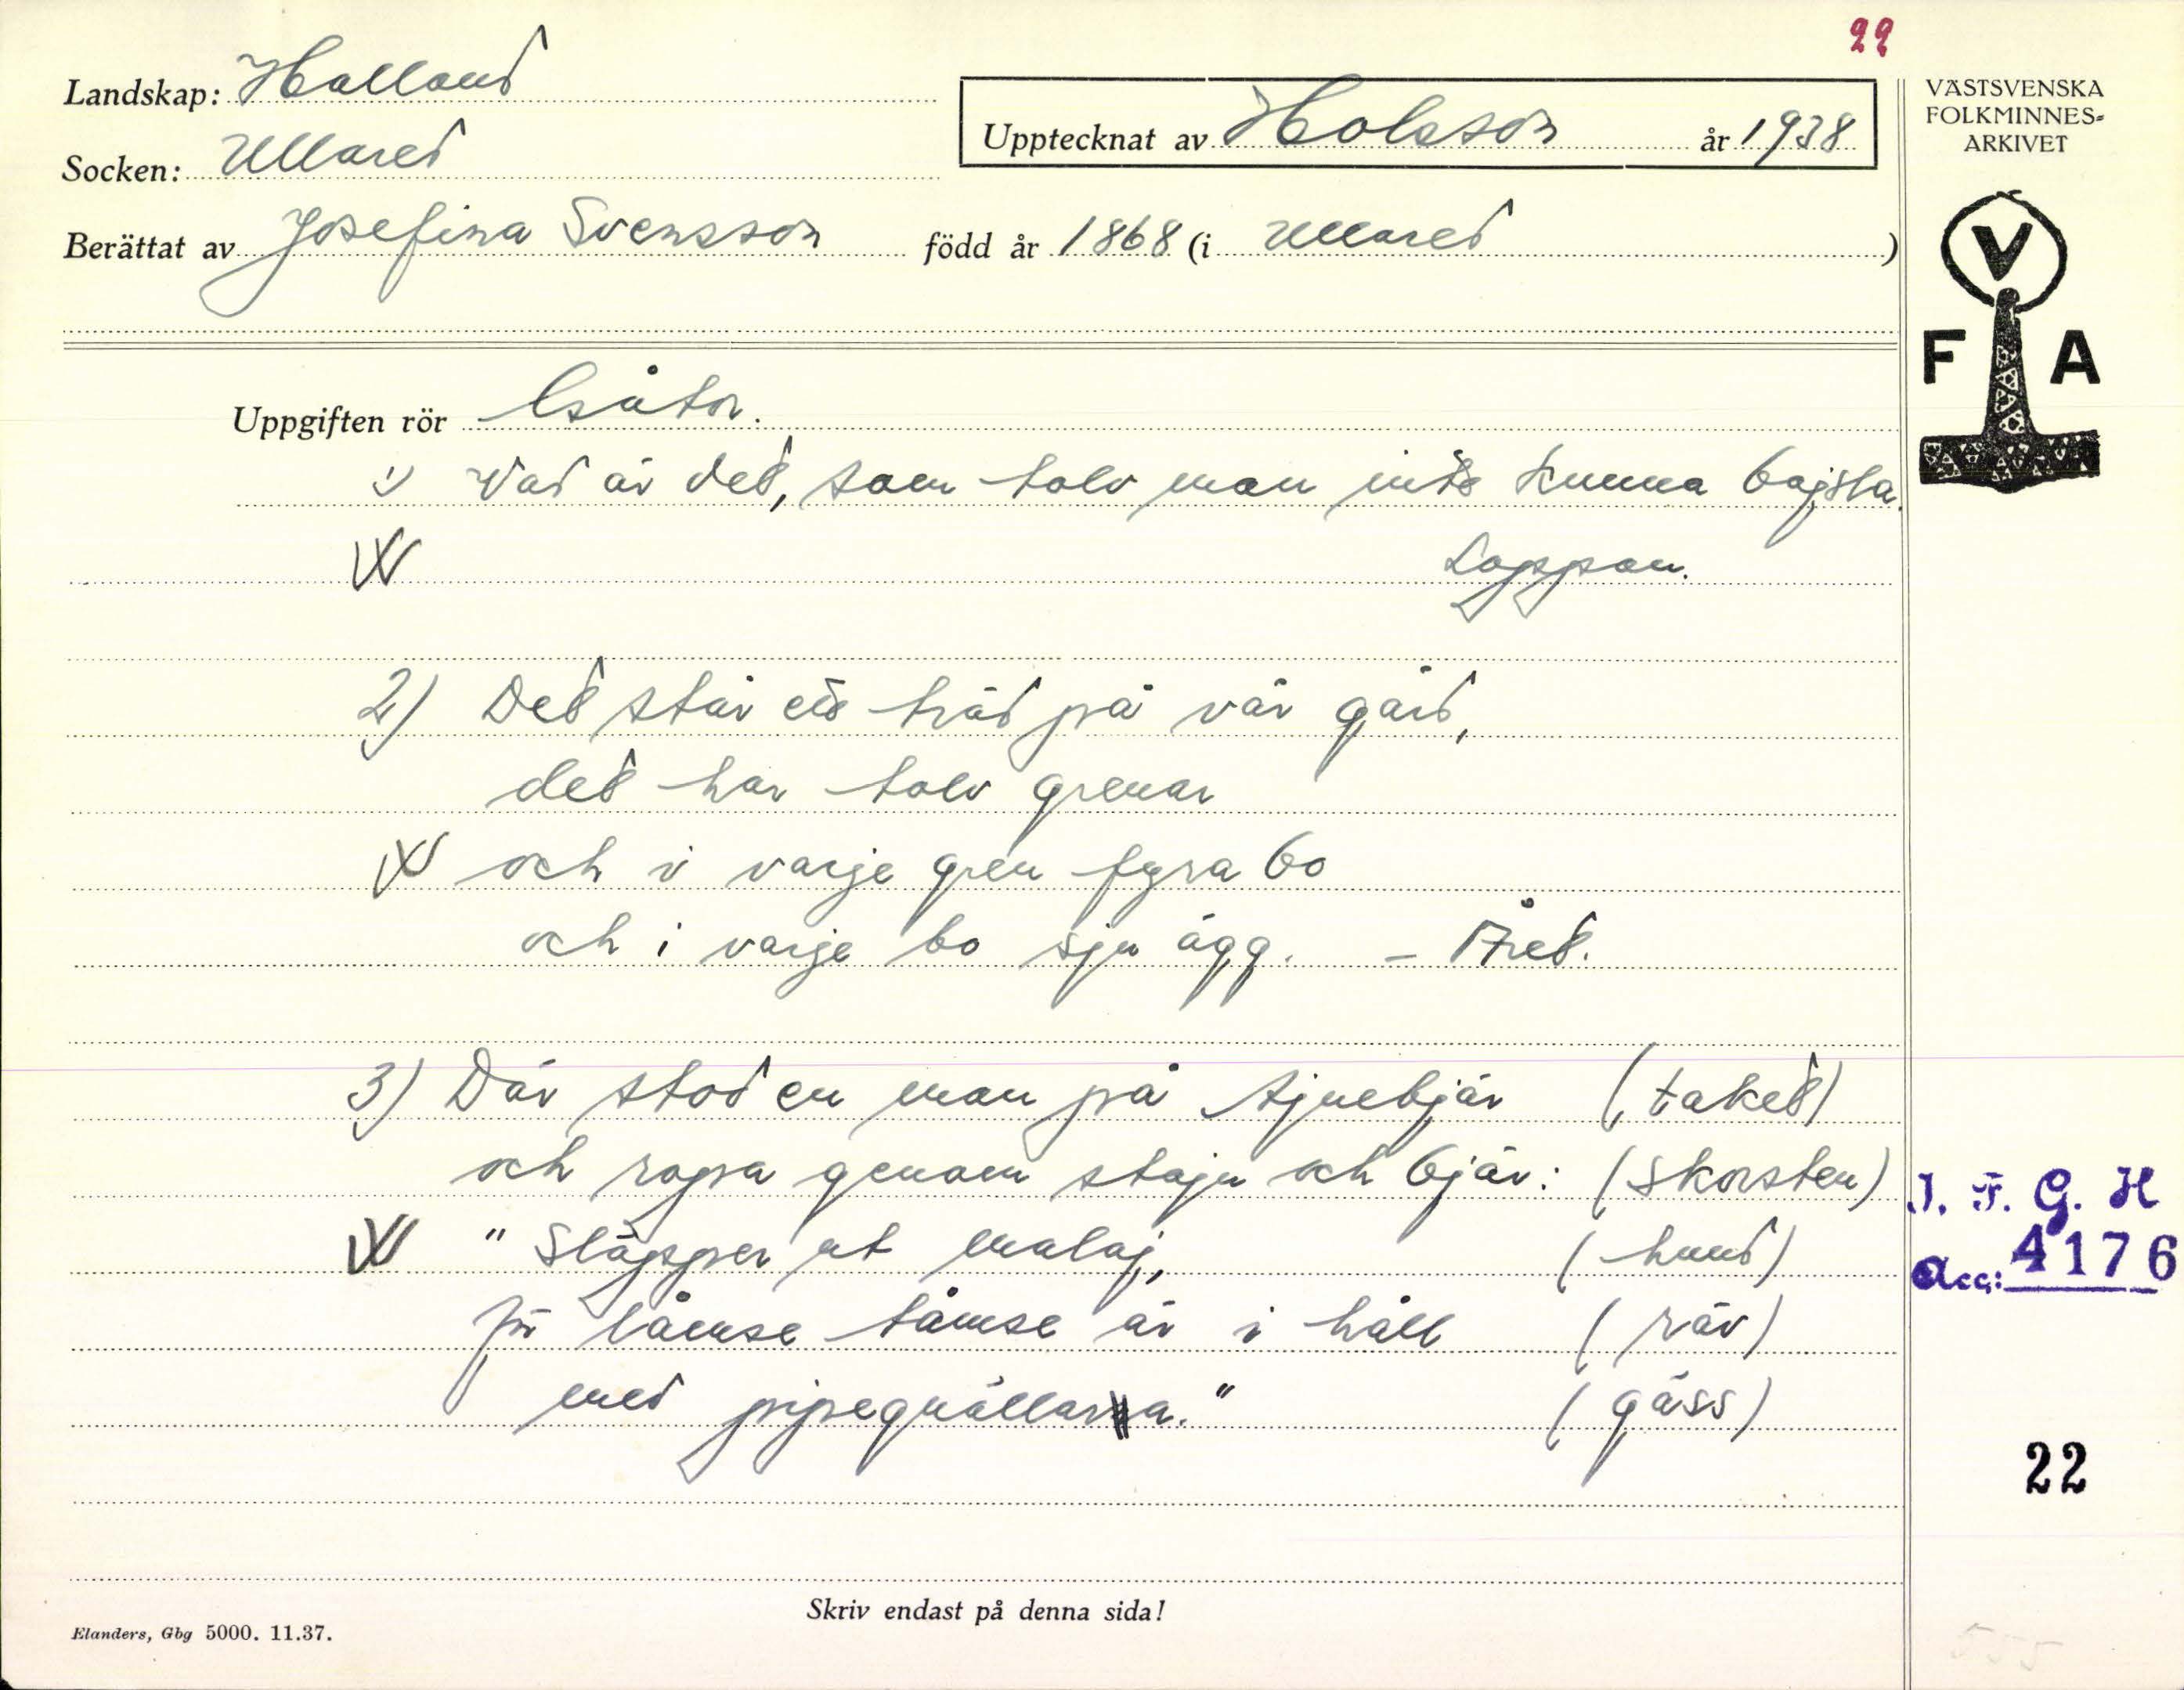 22
Landskap: Halland
Upptecknat av Holsson år 1938
VÄSTSVENSKA
FOLKMINNES-
ARKIVET
Socken: Ullared
Berättat av Josefina Svensson född år 1868 (i Ullared )
V
F A
Uppgiften rör Gåtor.
1) Vad är det, som tolv man inte kunna bajsla.
Loppan.
2) Det står ett träd på vår gård,
det har tolv grenar
och i varje gren fyra bo
och i varje bo sju ägg. – Året.
3) Där stod en man på tjuebjär (taket)
och ropa genom staju och bjär: (skorsten)
"Släpper ut malaj, (hund)
för låmse tåmse är i håll (räv)
med pipegnällarna." (gäss)
I. F. G. H
Acc: 4176
22
Skriv endast på denna sida!
Elanders, Gbg 5000. 11.37.